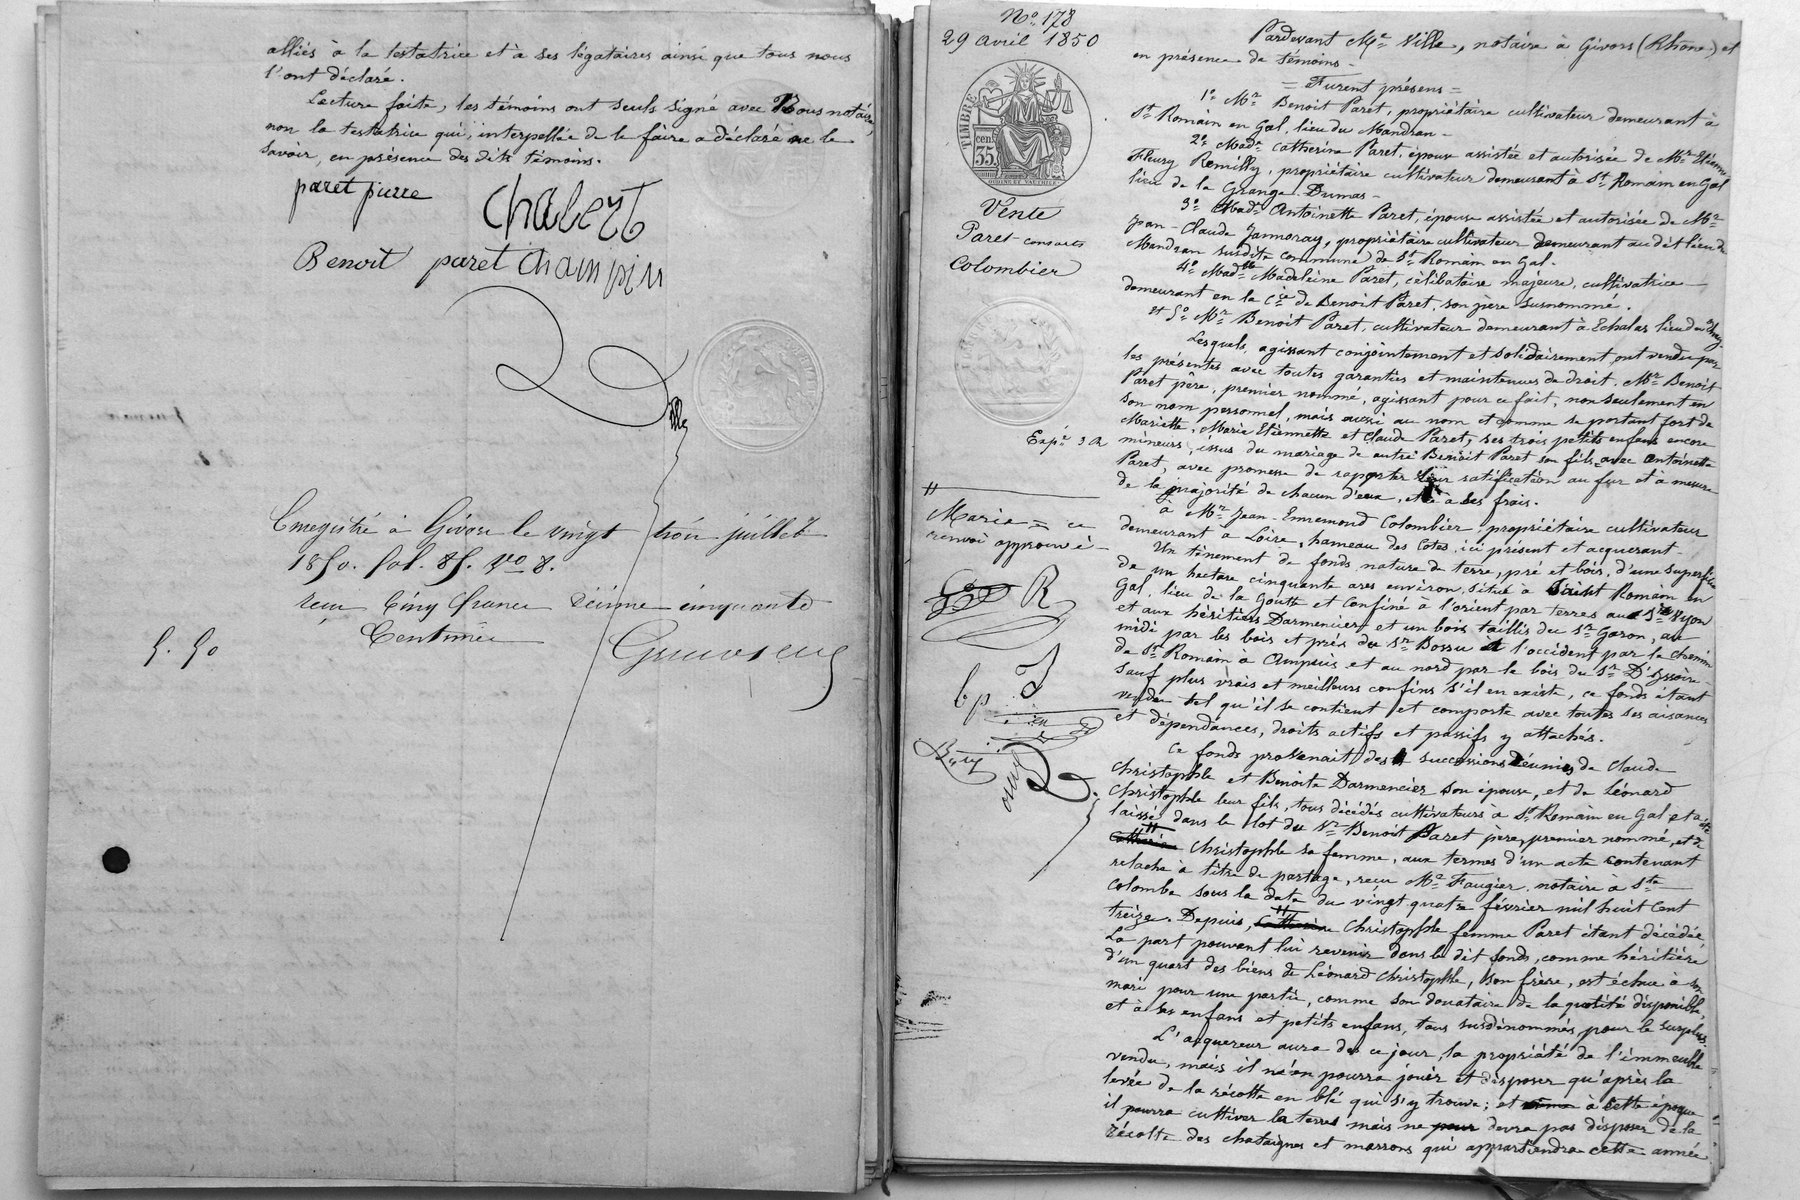 alliés à la testatrice et à ses légataires ainsi que tous nous
l'ont déclaré.
Lecture faite, les témoins ont seuls signé avec Nous notaire,
non la testatrice qui, interpellée de le faire a déclaré ne le
savoir, en présence des dits témoins.
paret pierre
Chabert
Benoit paret Champin
Ville
Enregistré à Givors le vingt trois juillet
1850. fol. 85. Vo 8.
reçu Cinq francs dixième cinquante
Centimes
5. 50
No 178
29 Avril 1850
TIMBRE
35 cen.
Vente
Paret consorts
Colombier
Expé 3 R
Marie = ce
renvoi approuvé -
R
bp J
Pardevant Me Ville, notaire à Givors (Rhône) et
en présence de témoins -
= Furent présens =
1o Mr Benoit Paret, propriétaire cultivateur demeurant à
St Romain en Gal, lieu du Mandran -
2o Made Catherine Paret, épouse assistée et autorisée de Mr Etienne
Fleury Remilly, propriétaire cultivateur demeurant à St Romain en Gal
lieu de la Grange Dumas -
3o Made Antoinette Paret, épouse assistée et autorisée de Mr
Jean-Claude Jannoray, propriétaire cultivateur demeurant au dit lieu de
Mandran susdite commune de St Romain en Gal.
4o Madlle Madeleine Paret, célibataire majeure, cultivatrice
demeurant en la Cie de Benoit Paret, son père susnommé.
et 5o Mr Benoit Paret, cultivateur demeurant à Echalas lieu du
Lesquels, agissant conjointement et solidairement ont vendu par
les présentes avec toutes garanties et maintenues de droit, Mr Benoit
Paret père, premier nommé, agissant pour ce fait, non seulement en
son nom personnel, mais aussi au nom et comme se portant fort de
Mariette, Marie Etiennette et Claude Paret, ses trois petits enfans encore
mineurs, issus du mariage de autre Benoit Paret son fils avec Antoinette
Paret, avec promesse de rapporter leur ratification au fur et à mesure
de la majorité de chacun d'eux, et à ses frais.
à Mr Jean-Ennemond Colombier, propriétaire cultivateur
demeurant à Loire, hameau des Cotes, ici présent et acquerant -
Un tènement de fonds nature de terre, pré et bois, d'une superficie
de un hectare cinquante ares environ, situé à Saint Romain en
Gal, lieu de la Goutte et confiné à l'orient par terres au Sr Vyon
et aux héritiers Darmencier et un bois taillis du Sr Garon, au
midi par les bois et prés du Sr Bossu à l'occident par le chemin
de St Romain à Ampuis et au nord par le bois du Sr D'Yssoire
sauf plus vrais et meilleurs confins s'il en existe, ce fonds étant
vendu tel qu'il se contient et comporte avec toutes ses aisances
et dépendances, droits actifs et passifs y attachés.
Ce fonds provenait des successions réunies de Claude
Christophle et Benoite Darmencier son épouse, et de Léonard
Christophle leur fils, tous décédés cultivateurs à St Romain en Gal et a été
laissé dans le lot du Sr Benoit Paret père, premier nommé, et de
Catherine Christophle sa femme, aux termes d'un acte contenant
relache à titre de partage, reçu Me Faugier, notaire à Ste
Colombe sous la date du vingt quatre février mil huit cent
treize. Depuis, Catherine Christophle femme Paret étant décédée,
La part pouvant lui revenir dans le dit fonds, comme héritière
d'un quart des biens de Léonard Christophle, son frère, est échue à son
mari pour une partie, comme son donataire de la quotité disponible,
et à ses enfans et petits enfans, tous susdénommés, pour le surplus.
L'acquereur aura dès ce jour, la propriété de l'immeuble
vendu, mais il n'en pourra jouir et disposer qu'après la
levée de la récolte en blé qui s'y trouve; et à cette époque
il pourra cultiver la terre mais ne devra pas disposer de la
récolte des chataignes et marrons qui appartiendra cette année